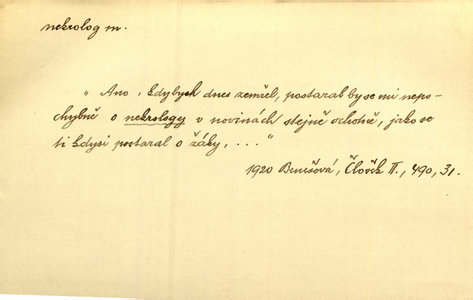 nekrolog m.
„Ano, kdybych dnes zemřel, postaral by se mi nepo-
chybně o nekrology v novinách stejně ochotně, jako se
ti kdysi postaral o žáky, ...“
1920 Benešová, Člověk II., 490, 31.